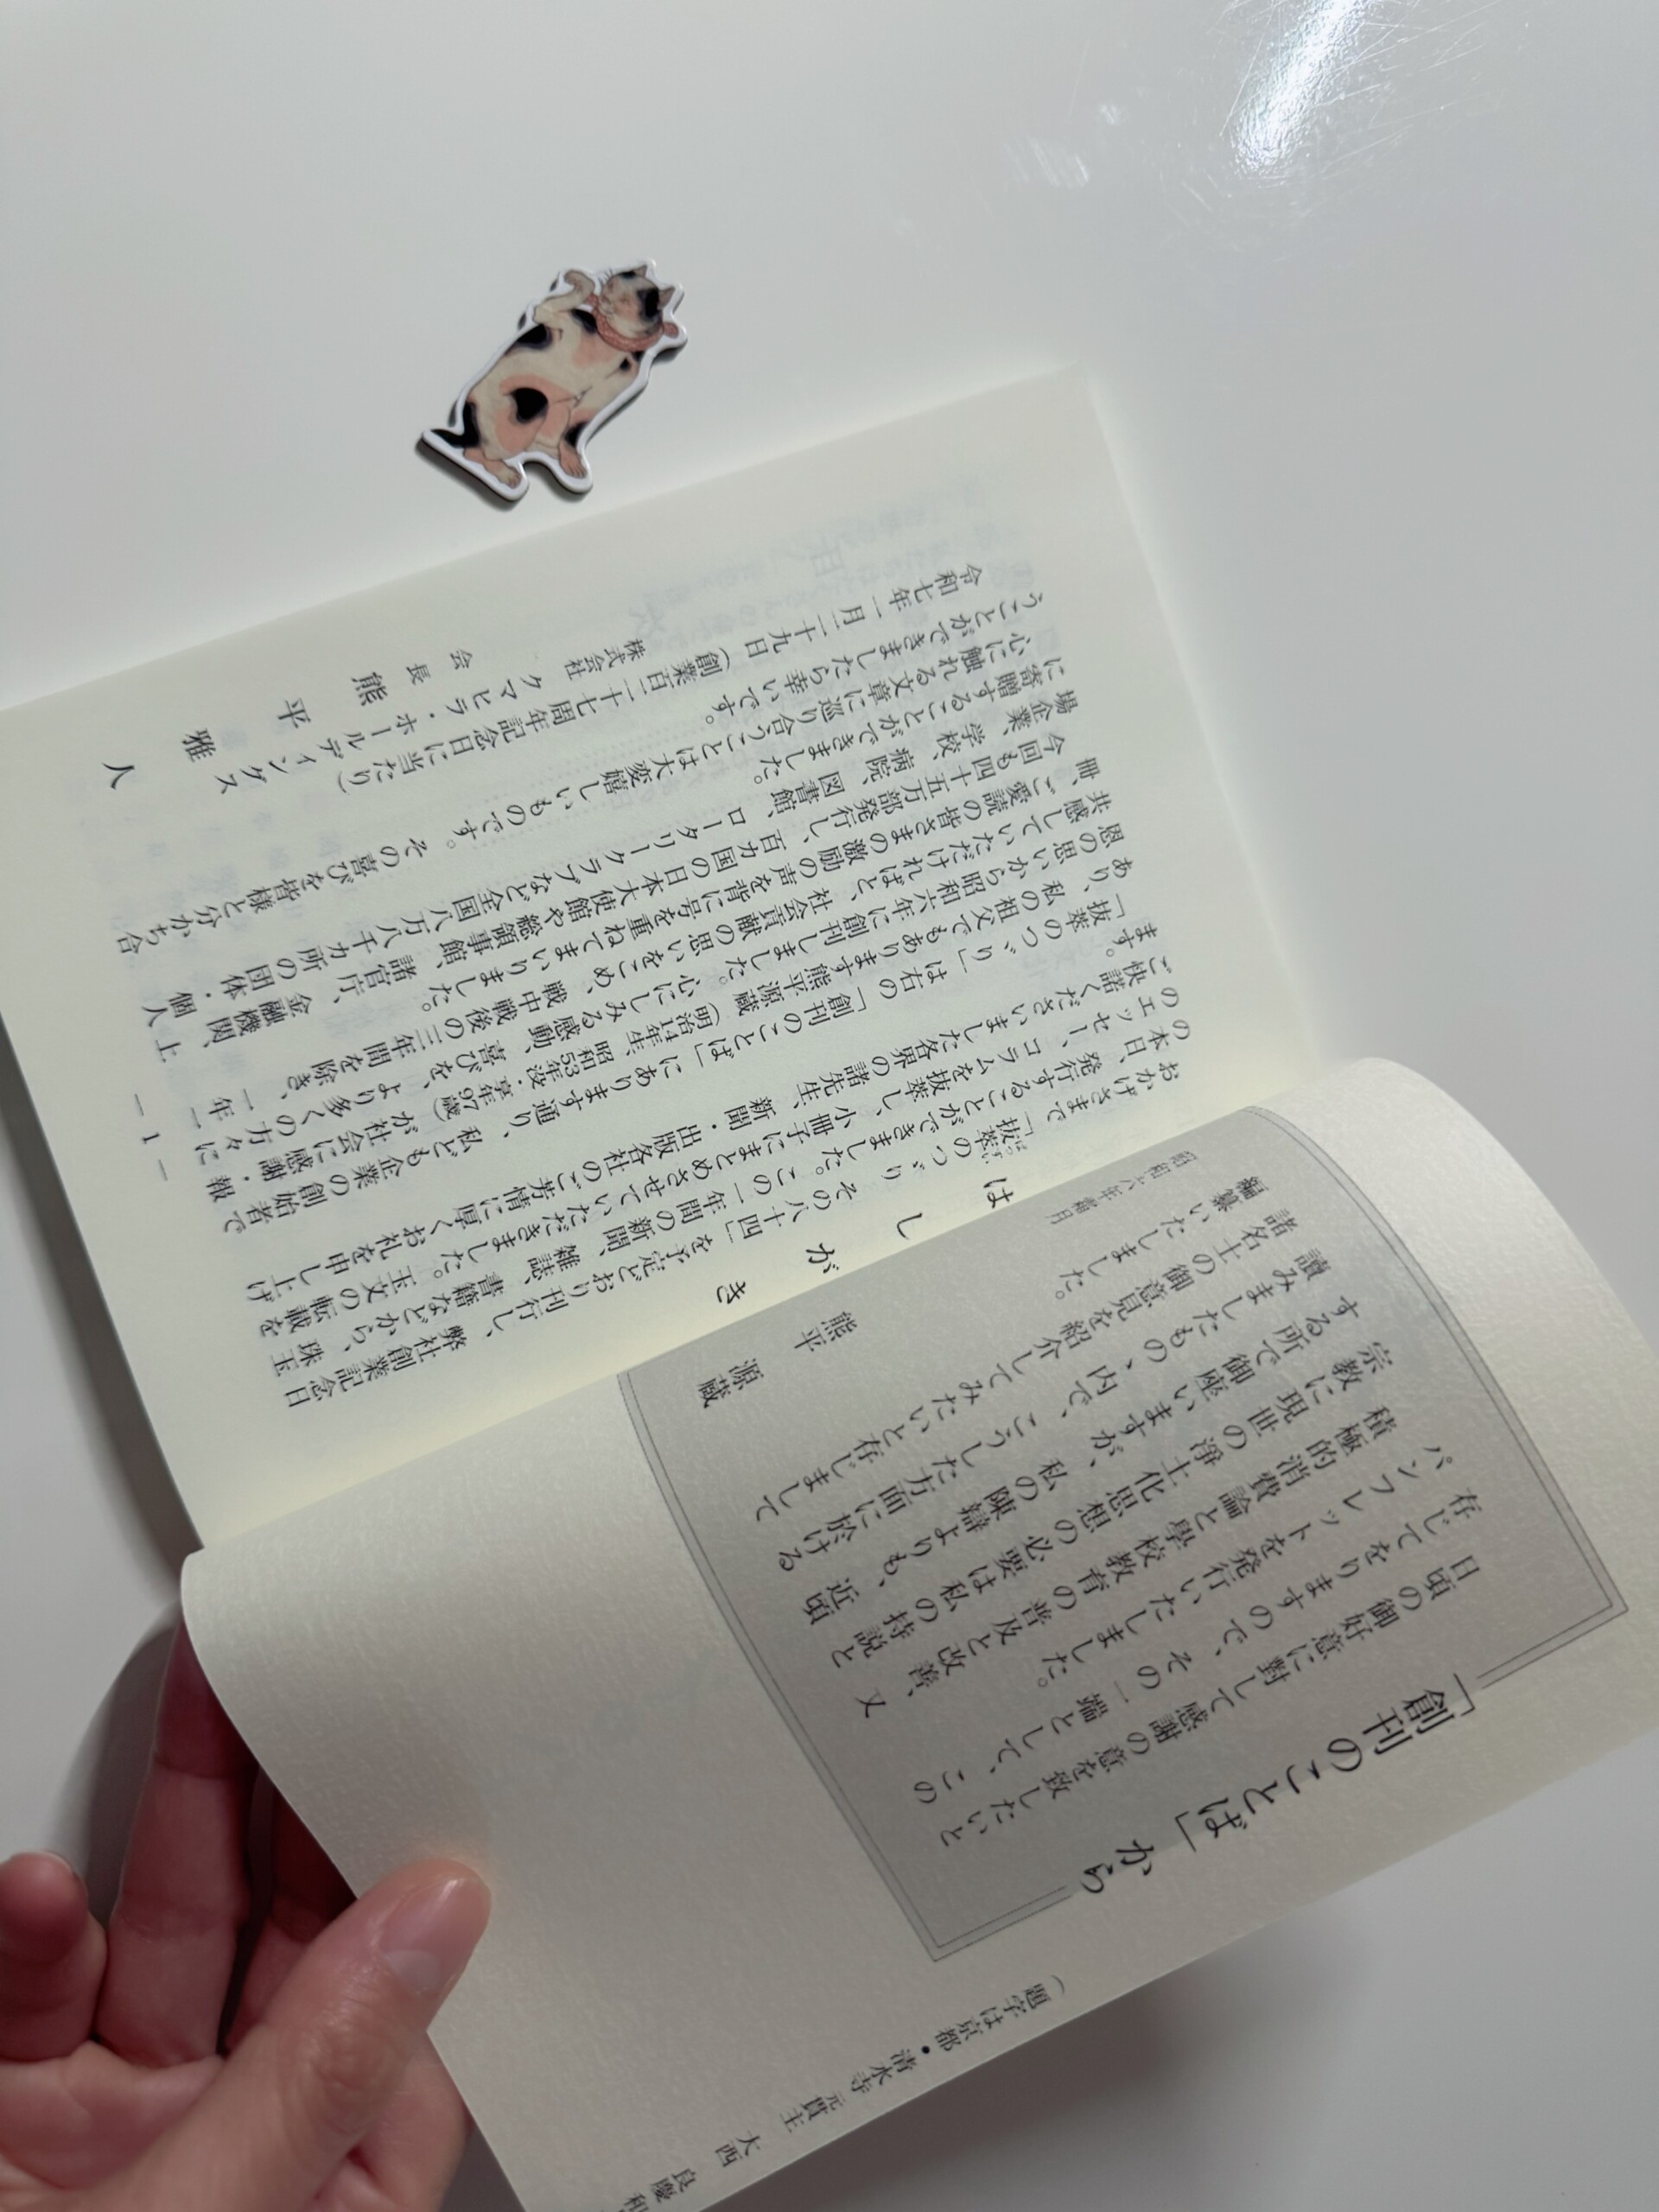 「創刊のことば」から
日頃の御好意に對して感謝の意を致したいと
存じてをりますので、その一端として、この
パンフレットを発行いたしました。
積極的消費論と學校教育の普及と改善、又
宗教に現世の淨土化思想の必要は私の持説と
する所で御座いますが、私の陳辯よりも、近頃
讀みましたもの、内で、こうした方面に於ける
諸名士の御意見を紹介してみたいと存じまして
編纂いたしました。
昭和六年霜月
熊平 源蔵
（題字は京都・清水寺 元貫主 大西 良慶和
はしがき
おかげさまで「抜萃のつゞり その八十四」を予定どおり刊行し、弊社創業記念日
の本日、発行することができました。この一年間の新聞、雑誌、書籍などから、珠玉
のエッセー、コラムを抜萃し、小冊子にまとめさせていただきました。玉文の転載を
ご快諾くださいました各界の諸先生、新聞・出版各社のご芳情に厚くお礼を申し上げ
ます。
「抜萃のつゞり」は右の「創刊のことば」にあります通り、私ども企業の創始者で
あり、私の祖父でもあります熊平源蔵（明治14年生、昭和53年没・享年97歳）が社会に感謝・報
恩の思いから昭和六年に創刊しました。心にしみる感動、喜びを、より多くの方々に
共感していただければと、社会貢献の思いをこめ、戦中戦後の三年間を除き、一年一
冊、ご愛読の皆さまの激励の声を背に号を重ねてまいりました。
今回も四十五万部発行し、百カ国の日本大使館や総領事館、諸官庁、金融機関、上
場企業、学校、病院、図書館、ロータリークラブなど全国八万八千カ所の団体・個人
に寄贈することができました。
心に触れる文章に巡り合うことは大変嬉しいものです。その喜びを皆様と分かち合
うことができましたら幸いです。
令和七年一月二十九日（創業百二十七周年記念日に当たり）
株式会社 クマヒラ・ホールディングス
会長 熊平雅人
― 1 ―